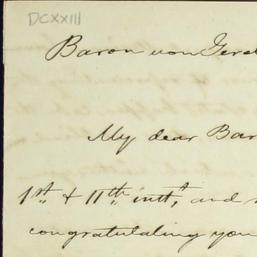 DCXXIII
Baron von Gerol
My dear Bar
1st. & 11th. instt, and
congratulating you